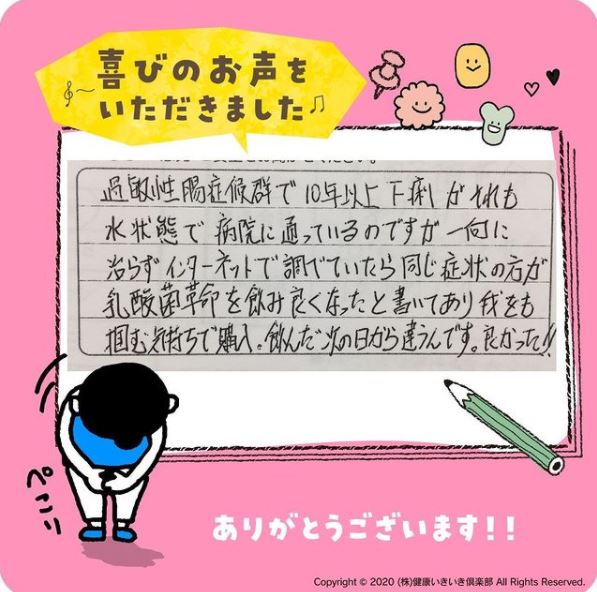 喜びのお声を
いただきました
過敏性腸症候群で10年以上下痢がそれも
水状態で病院に通っているのですが一向に
治らずインターネットで調べていたら同じ症状の方が
乳酸菌革命を飲み良くなったと書いてあり我をも
掴む気持ちで購入。飲んだ次の日から違うんです。良かった!!
ぺこり
ありがとうございます!!
Copyright © 2020 (株)健康いきいき俱楽部 All Rights Reserved.